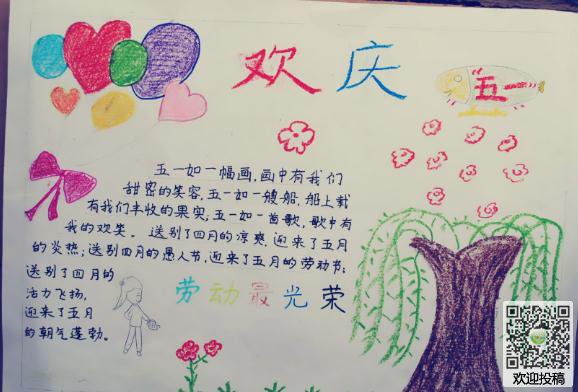 欢庆
五一
五一如一幅画,画中有我们
甜密的笑容,五一如一艘船,船上载
有我们丰收的果实;五一如一首歌,歌中有
我的欢笑。送别了四月的凉爽,迎来了五月
的炎热;送别四月的愚人节,迎来了五月的劳动节;
送别了四月的
活力飞扬,
迎来了五月
的朝气蓬勃。
劳动最光荣
欢迎投稿